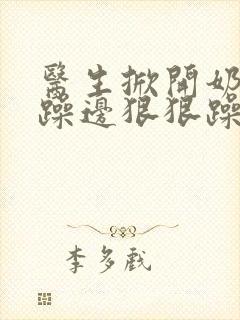 醫生掀開奶
躁邊狠狠躁
李多戲